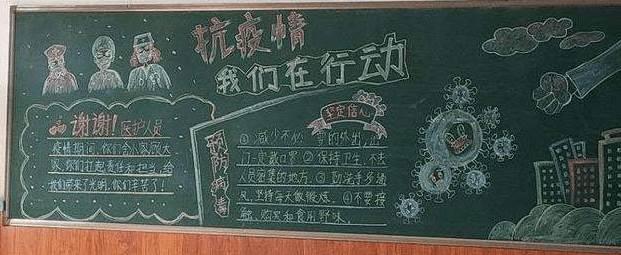 抗疫情
我们在行动
谢谢!医护人员
疫情期间,你们舍小家顾大
家,你们扛起责任和担当,给
我们带来了光明,你们辛苦了!
坚定信心
预防病毒
①减少不必要的外出,出
门一定戴口罩②保持卫生,不去
人员密集的地方.③勤洗手多通
风,坚持每天做锻炼.④不要接
触、购买和食用野味.